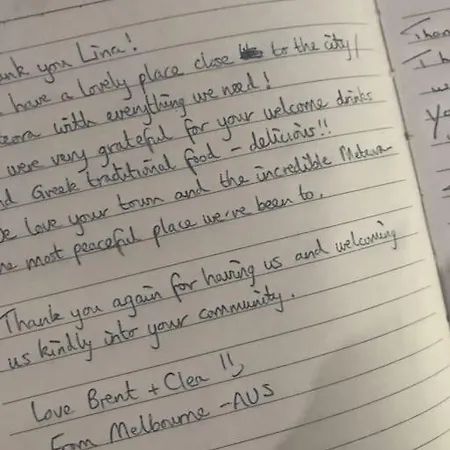 ank you Lina!
have a lovely place close to the city/
eora with everything we need!
were very grateful for your welcome drinks
nd Greek traditional food - delicious!!
e love your town and the incredible Meteora
he most peaceful place we've been to.
Thank you again for having us and welcoming
us kindly into your community.
Love Brent + Clea !!
From Melbourne - AUS